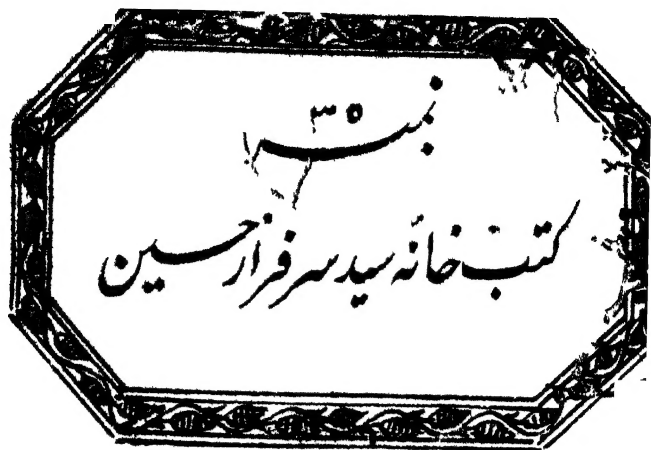 نمبر ۳۵
کتب خانۂ سید سرفراز حسین